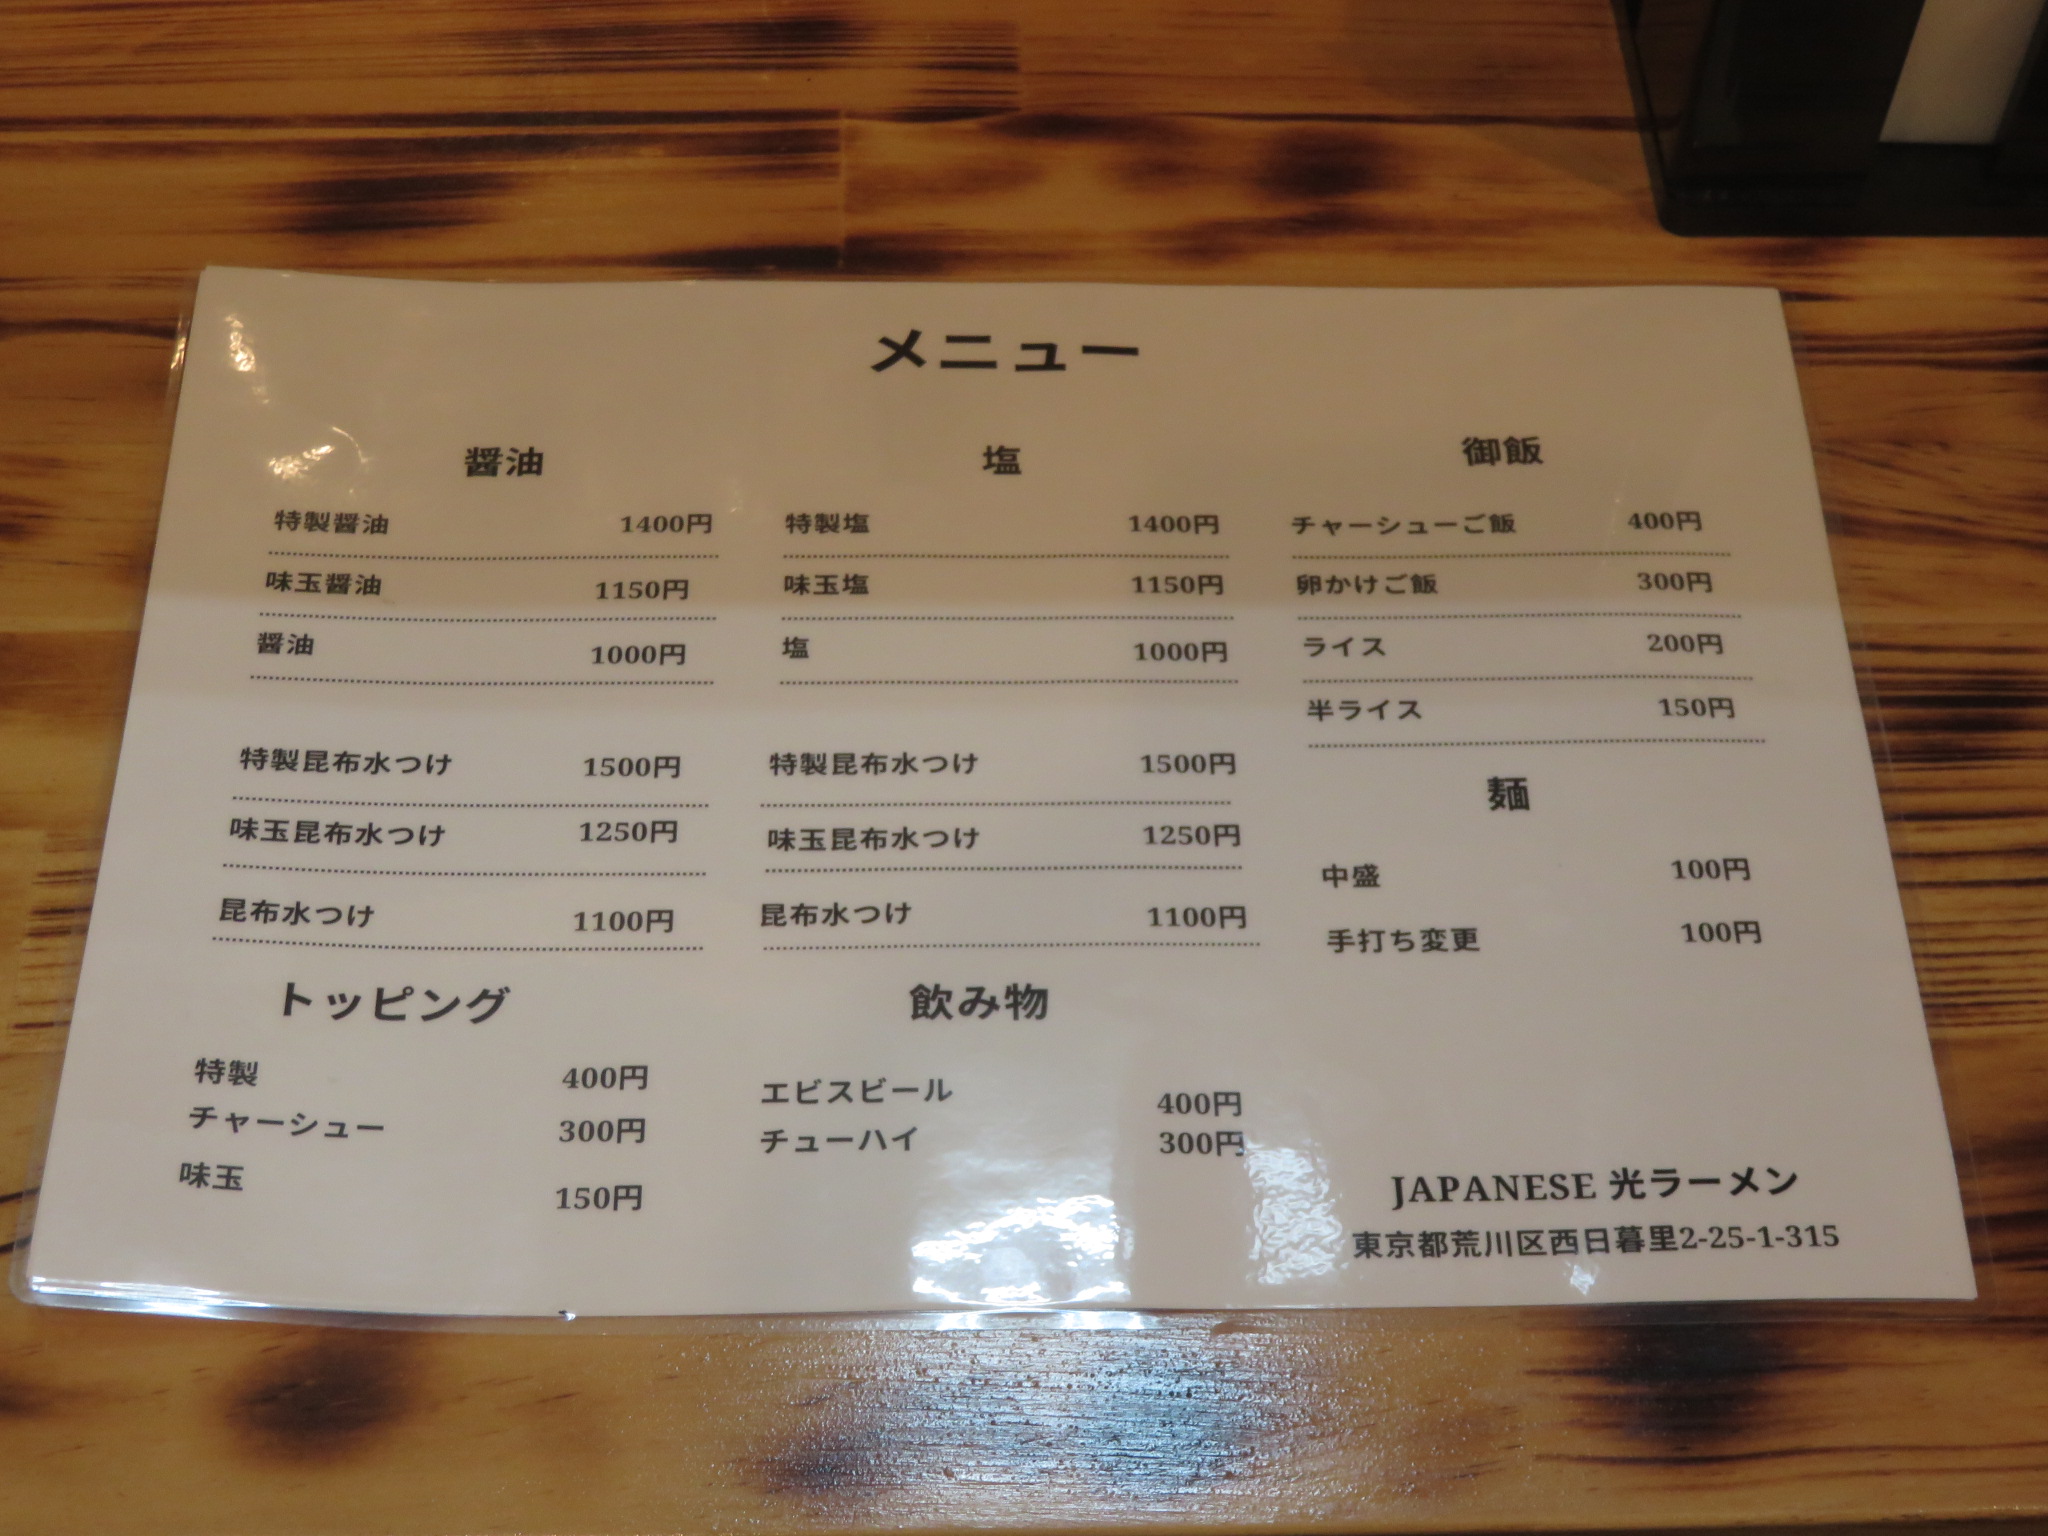 メニュー
醤油
特製醤油 1400円
味玉醤油 1150円
醤油 1000円
特製昆布水つけ 1500円
味玉昆布水つけ 1250円
昆布水つけ 1100円
塩
特製塩 1400円
味玉塩 1150円
塩 1000円
特製昆布水つけ 1500円
味玉昆布水つけ 1250円
昆布水つけ 1100円
御飯
チャーシューご飯 400円
卵かけご飯 300円
ライス 200円
半ライス 150円
麺
中盛 100円
手打ち変更 100円
トッピング
特製 400円
チャーシュー 300円
味玉 150円
飲み物
エビスビール 400円
チューハイ 300円
JAPANESE 光ラーメン
東京都荒川区西日暮里2-25-1-315